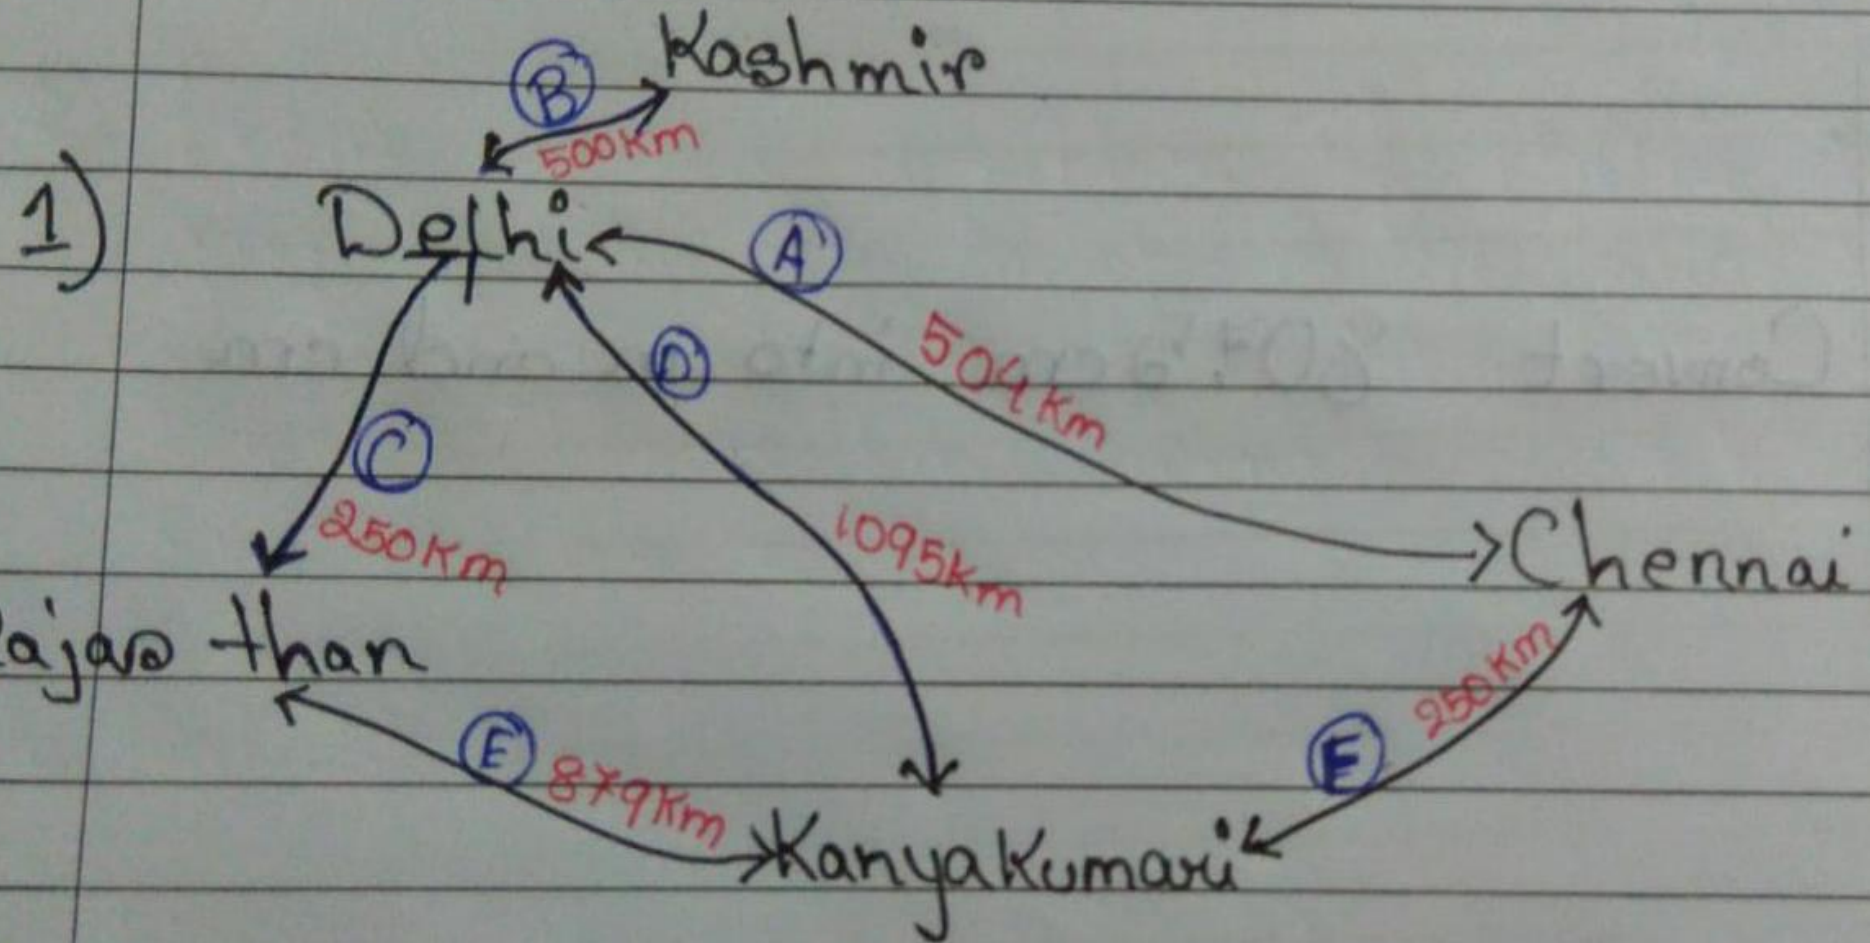 Kashmir
B
500Km
1)
Delhi
A
504Km
D
C
250Km
1095km
Chennai
Rajasthan
E
879Km
250Km
E
Kanyakumari